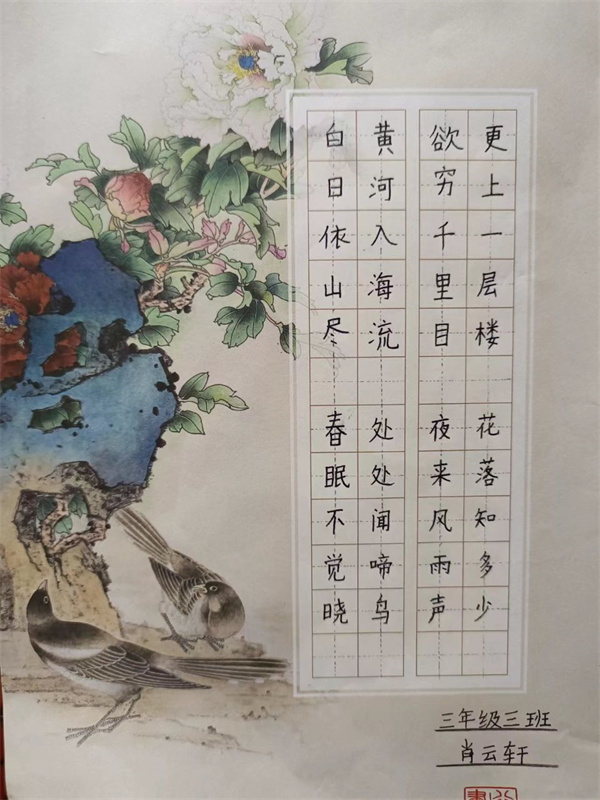 白日依山尽
黄河入海流
欲穷千里目
更上一层楼
春眠不觉晓
处处闻啼鸟
夜来风雨声
花落知多少
三年级三班
肖云轩